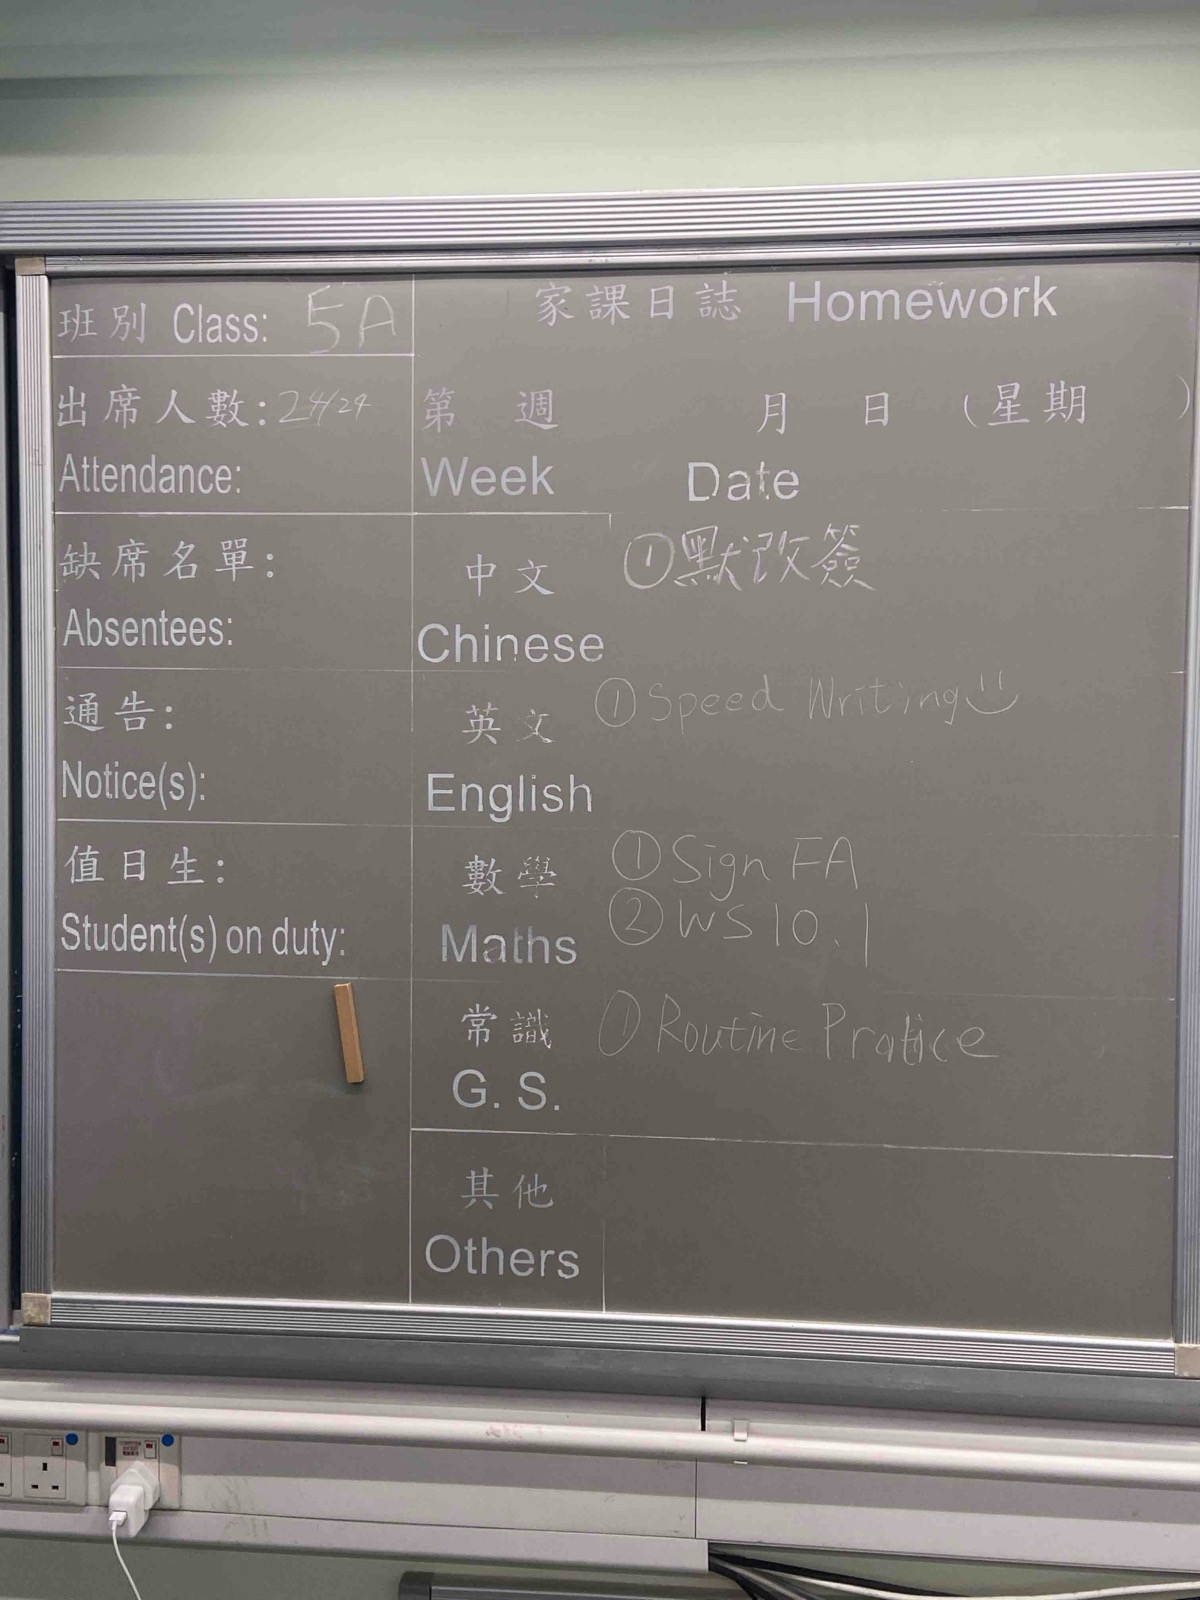 班別 Class: 5A
出席人數: 24/24
Attendance:
缺席名單:
Absentees:
通告:
Notice(s):
值日生:
Student(s) on duty:
家課日誌 Homework
第 週 月 日 (星期 )
Week Date
中文 ①默改簽
Chinese
英文 ①Speed Writing
English
數學 ①Sign FA
②WS10.1
Maths
常識 ①Routine Pratice
G. S.
其他
Others